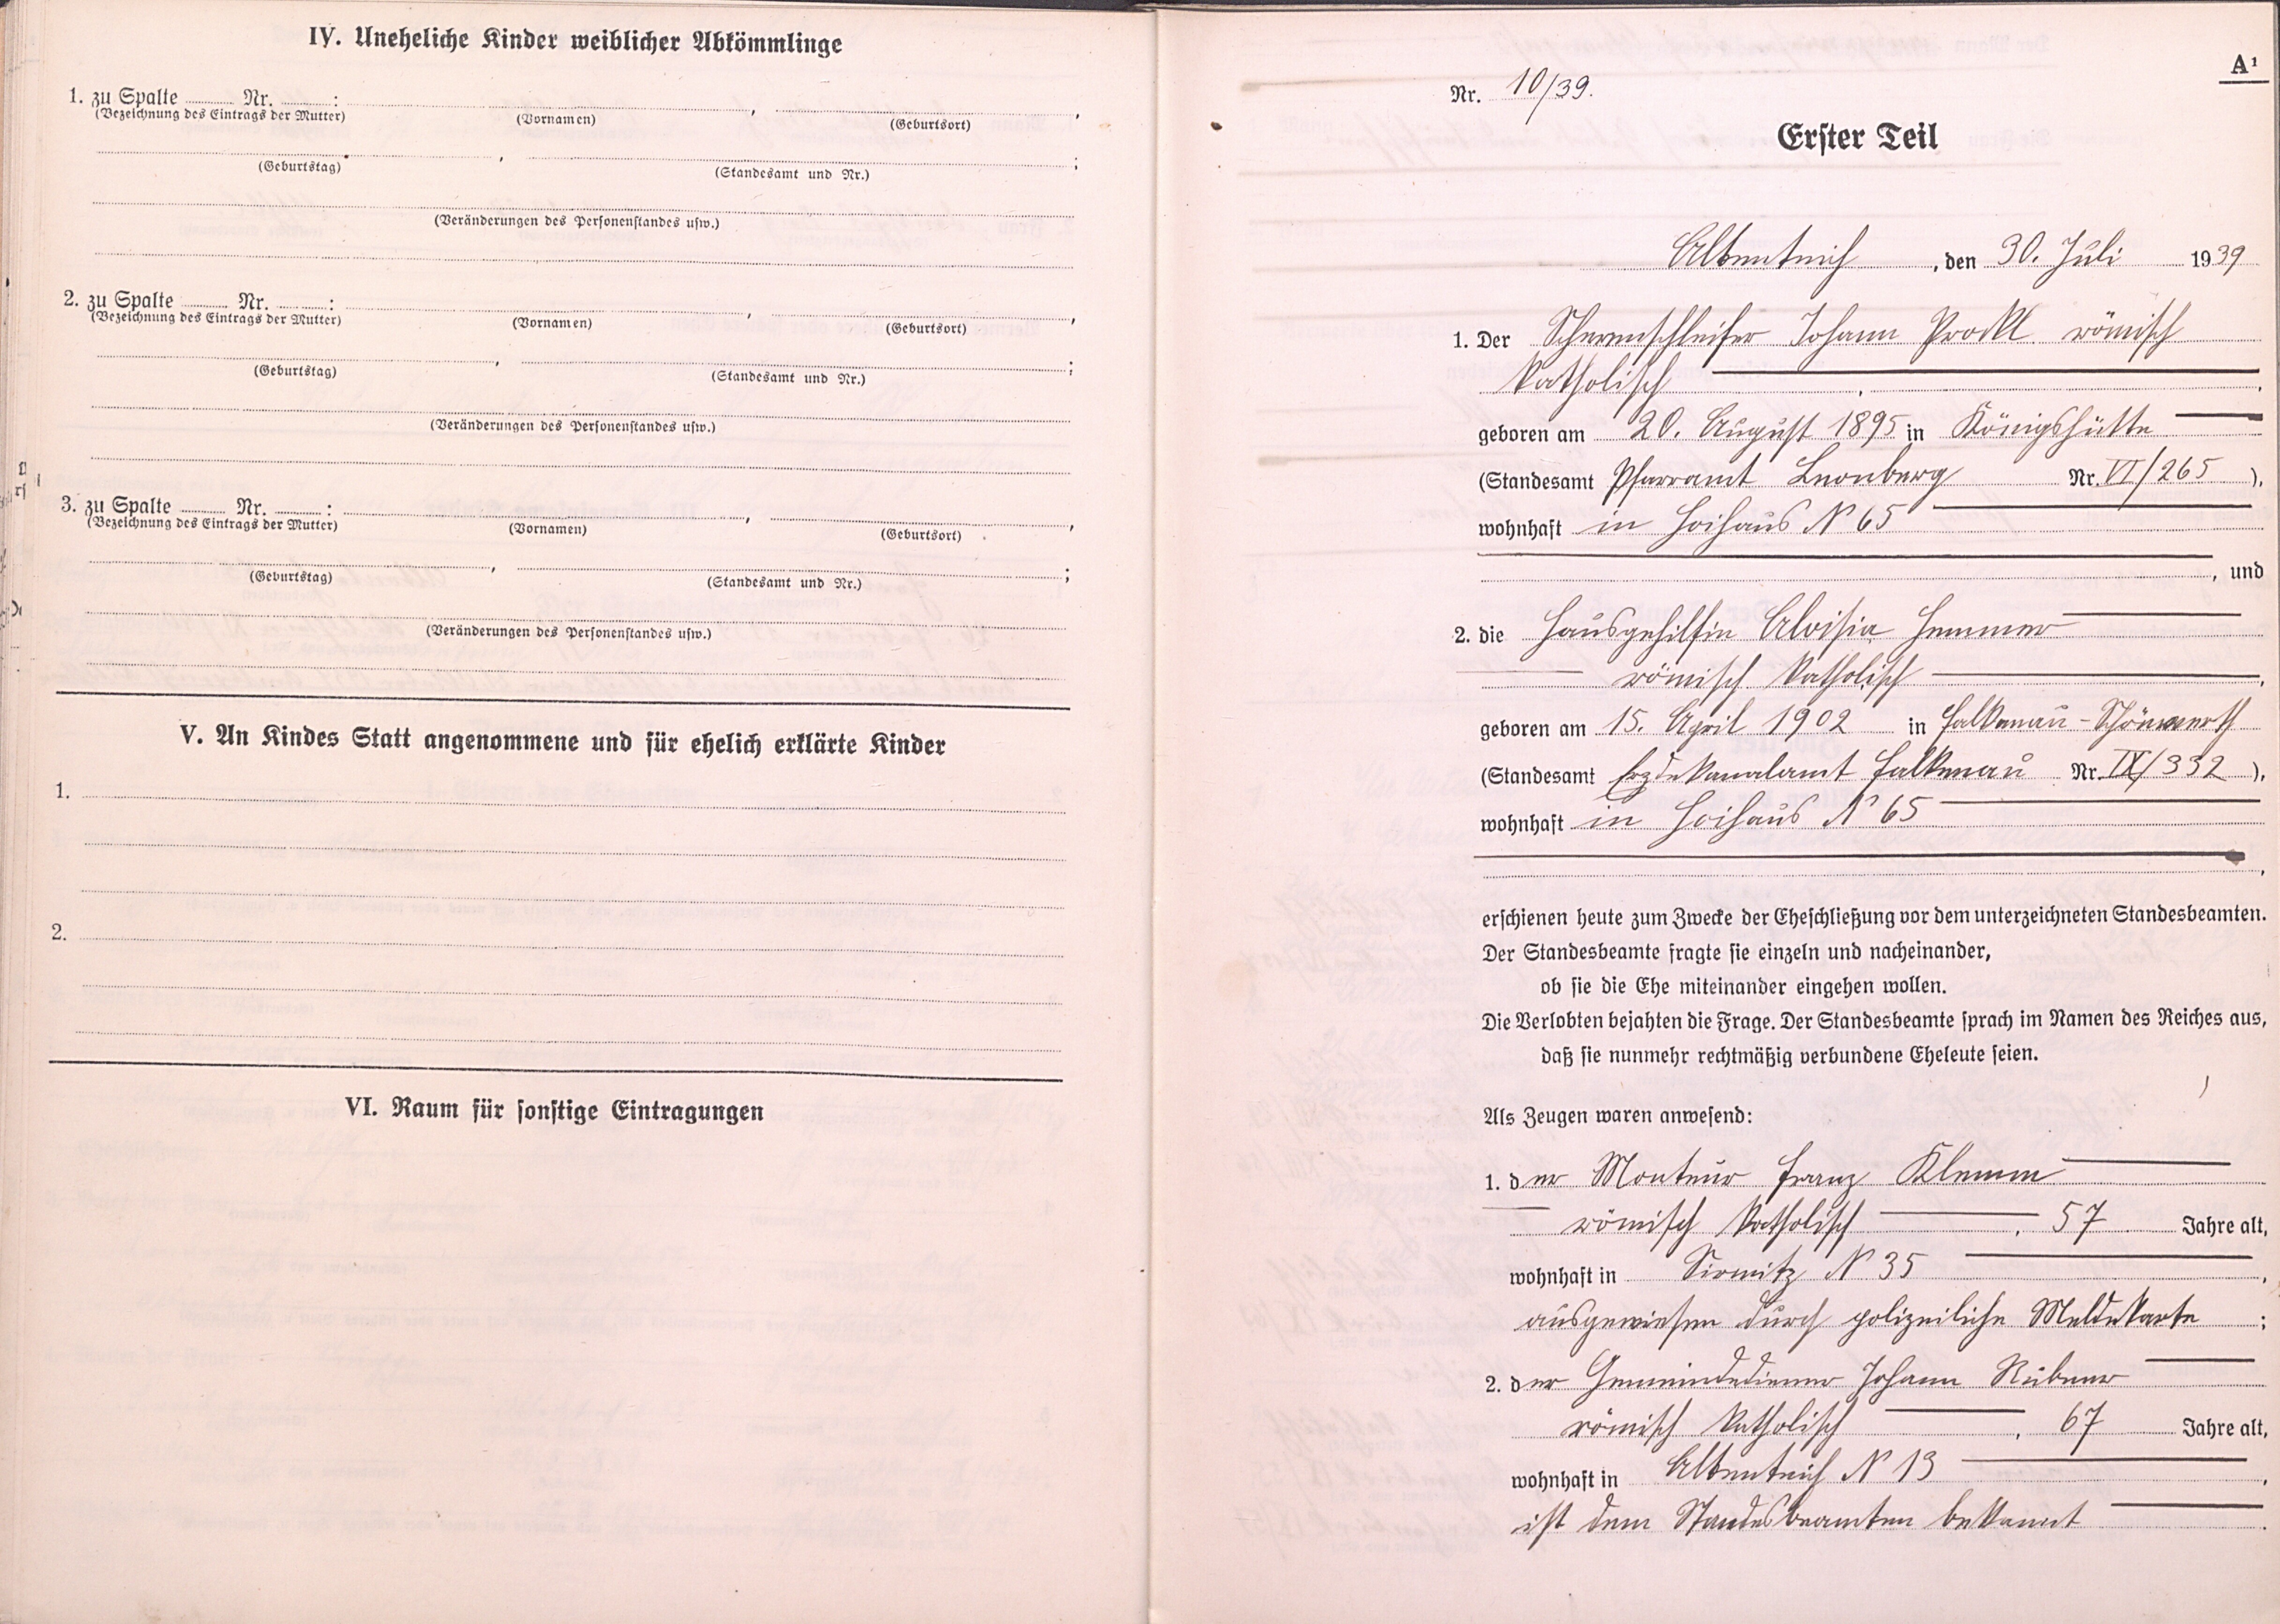 IV. Uneheliche Kinder weiblicher Abkömmlinge
1. zu Spalte Nr. :
(Bezeichnung des Eintrags der Mutter) (Vornamen) , (Geburtsort) ,
(Geburtstag) , (Standesamt und Nr.) ;
(Veränderungen des Personenstandes usw.)
2. zu Spalte Nr. :
(Bezeichnung des Eintrags der Mutter) (Vornamen) , (Geburtsort) ,
(Geburtstag) , (Standesamt und Nr.) ;
(Veränderungen des Personenstandes usw.)
3. zu Spalte Nr. :
(Bezeichnung des Eintrags der Mutter) (Vornamen) , (Geburtsort) ,
(Geburtstag) , (Standesamt und Nr.) ;
(Veränderungen des Personenstandes usw.)
V. An Kindes Statt angenommene und für ehelich erklärte Kinder
1.
2.
VI. Raum für sonstige Eintragungen
A¹
Nr. 10/39.
Erster Teil
Albenteich, den 30. Juli 1939
1. Der Scherenschleifer Johann Prockl römisch
katholisch ,
geboren am 20. August 1895 in Königshütte
(Standesamt Pfarramt Leonberg Nr. VI/265 ),
wohnhaft in Hoihaus N 65
, und
2. die Hausgehilfin Aloisia Hemmer
römisch katholisch ,
geboren am 15. April 1902 in Falkenau-Schönwerth
(Standesamt Erzdekanalamt Falkenau Nr. IX/332 ),
wohnhaft in Hoihaus N 65
,
erschienen heute zum Zwecke der Eheschließung vor dem unterzeichneten Standesbeamten.
Der Standesbeamte fragte sie einzeln und nacheinander,
ob sie die Ehe miteinander eingehen wollen.
Die Verlobten bejahten die Frage. Der Standesbeamte sprach im Namen des Reiches aus,
daß sie nunmehr rechtmäßig verbundene Eheleute seien.
Als Zeugen waren anwesend:
1. der Monteur Franz Klemm
römisch katholisch , 57 Jahre alt,
wohnhaft in Sirmitz N 35 ,
ausgewiesen durch polizeiliche Meldekarte ;
2. der Gemeindediener Johann Rubner
römisch katholisch , 67 Jahre alt,
wohnhaft in Albenteich N 13 ,
ist dem Standesbeamten bekannt .